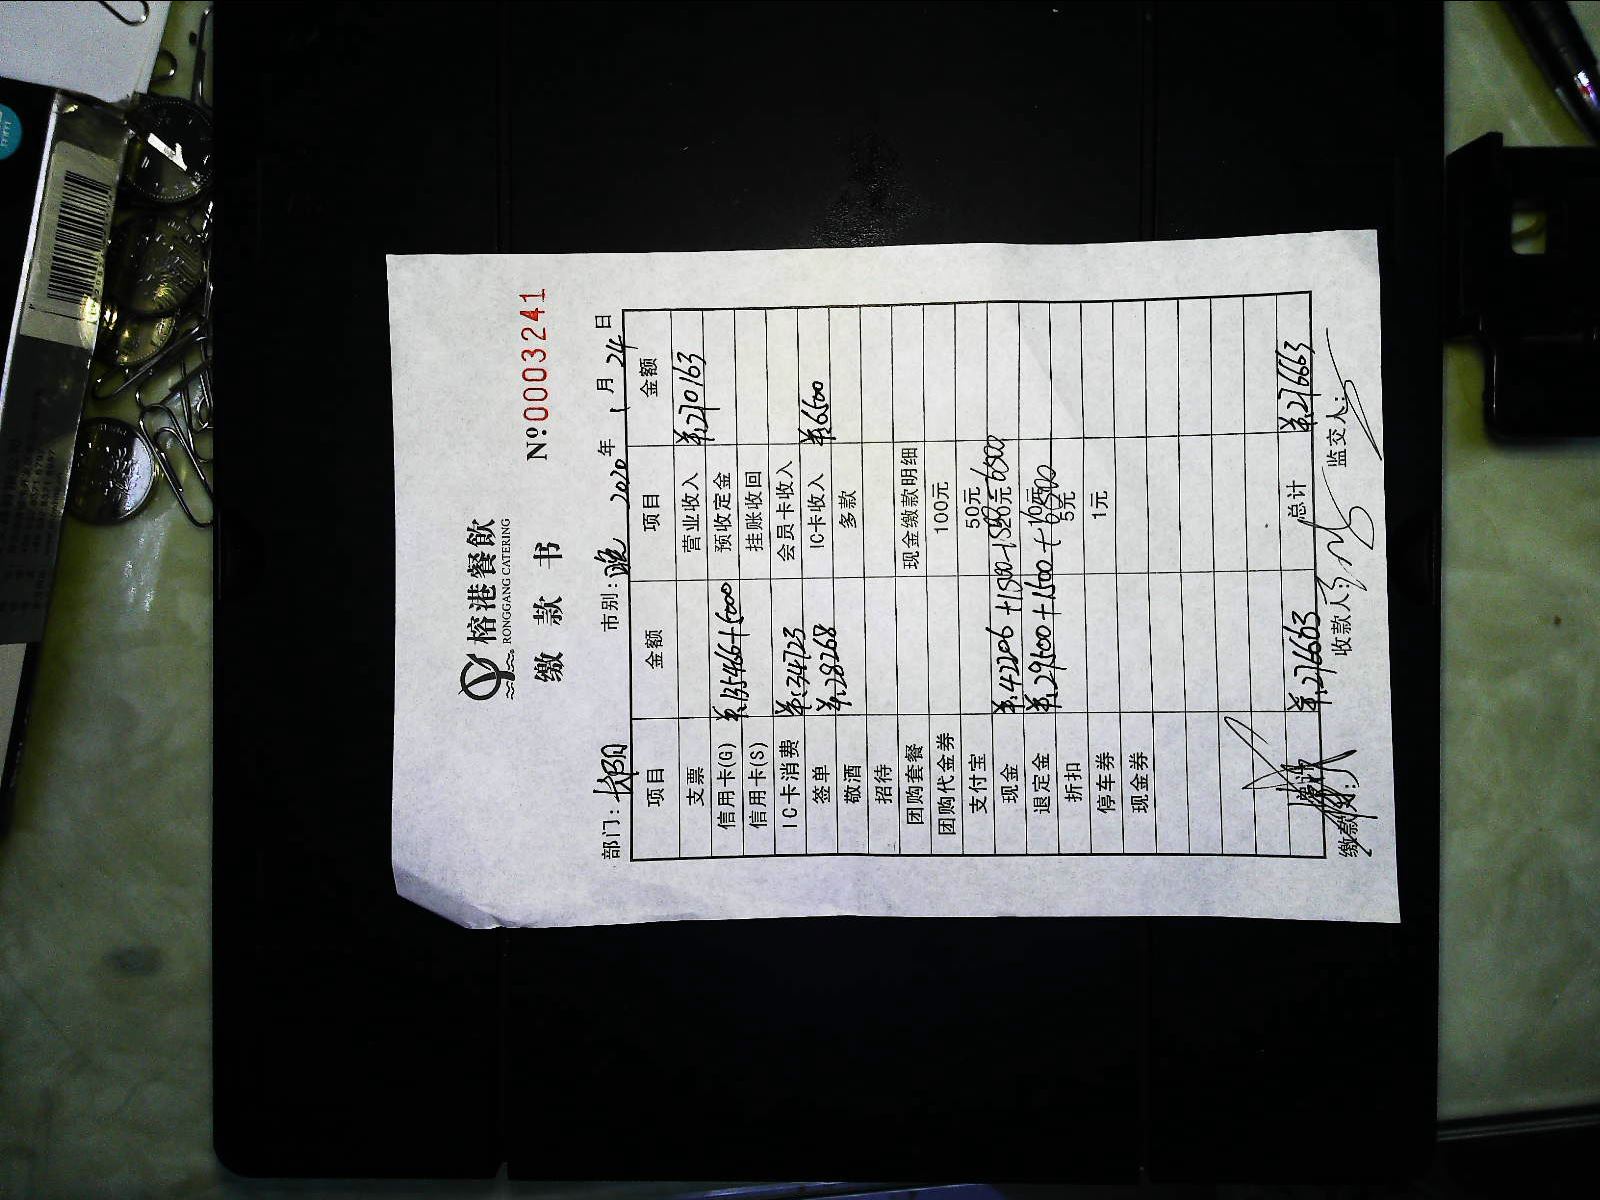 榕港餐飲
RONGGANG CATERING
缴 款 书 №:0003241
部门:长阳 市别:晚 2020 年 1 月 24 日
项目 金额 项目 金额
支票 营业收入 ¥:270163
信用卡(G) ¥:135466+5000 预收定金
信用卡(S) 挂账收回
IC卡消费 ¥:34723 会员卡收入
签单 ¥:28268 IC卡收入 ¥:6500
敬酒 多款
招待
团购套餐 现金缴款明细
团购代金券 100元
支付宝 50元
现金 ¥:42206+1500-1500-6500 20元
退定金 ¥:29500+1500+6500 10元
折扣 5元
停车券 1元
现金券
总计 ¥:276663 总计 ¥:276663
缴款人: 收款人: 监交人: